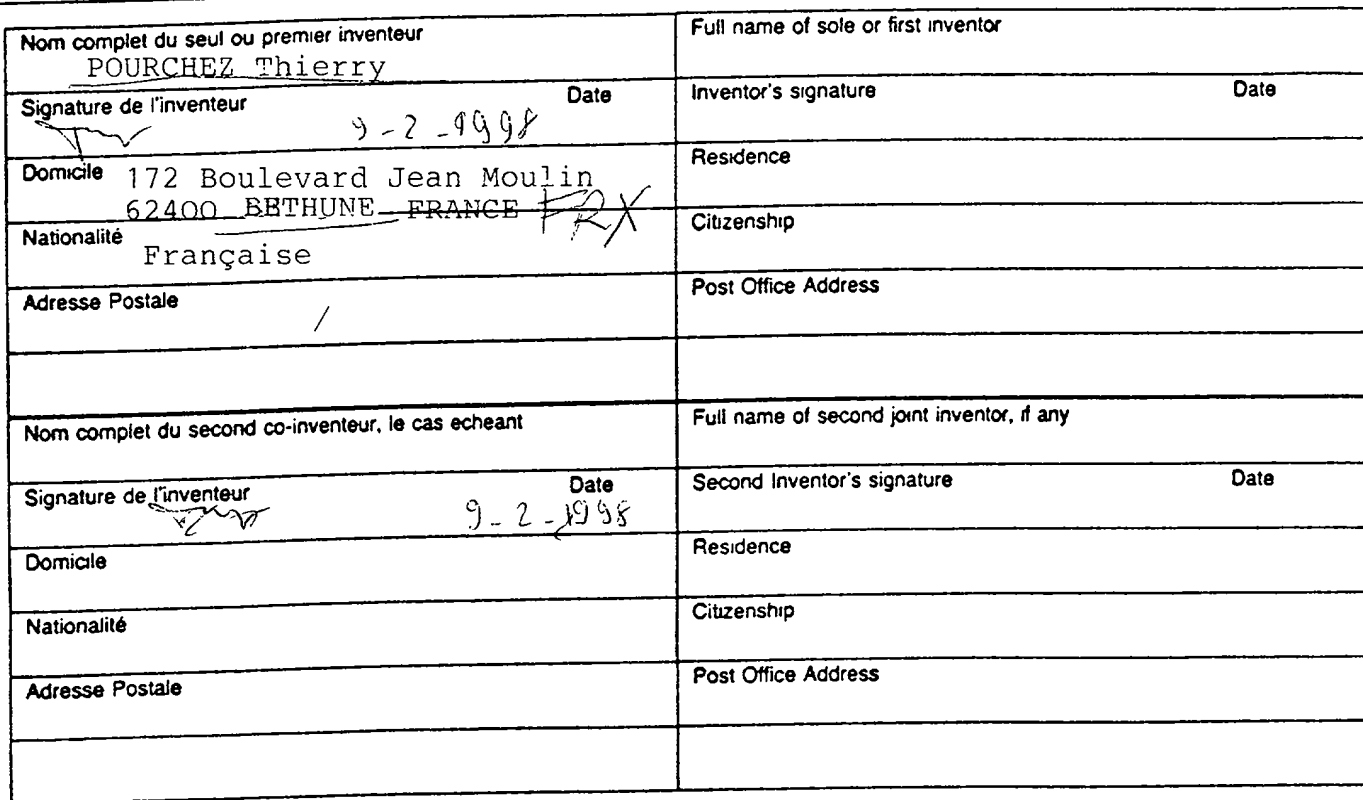 Nom complet du seul ou premier inventeur
POURCHEZ Thierry
Full name of sole or first inventor
Signature de l'inventeur Date
9-2-1998
Inventor's signature Date
Domicile 172 Boulevard Jean Moulin
62400 BETHUNE FRANCE FRX
Residence
Nationalité
Française
Citizenship
Adresse Postale
/
Post Office Address
Nom complet du second co-inventeur, le cas echeant
Full name of second joint inventor, if any
Signature de l'inventeur Date
9-2-1998
Second Inventor's signature Date
Domicile
Residence
Nationalité
Citizenship
Adresse Postale
Post Office Address